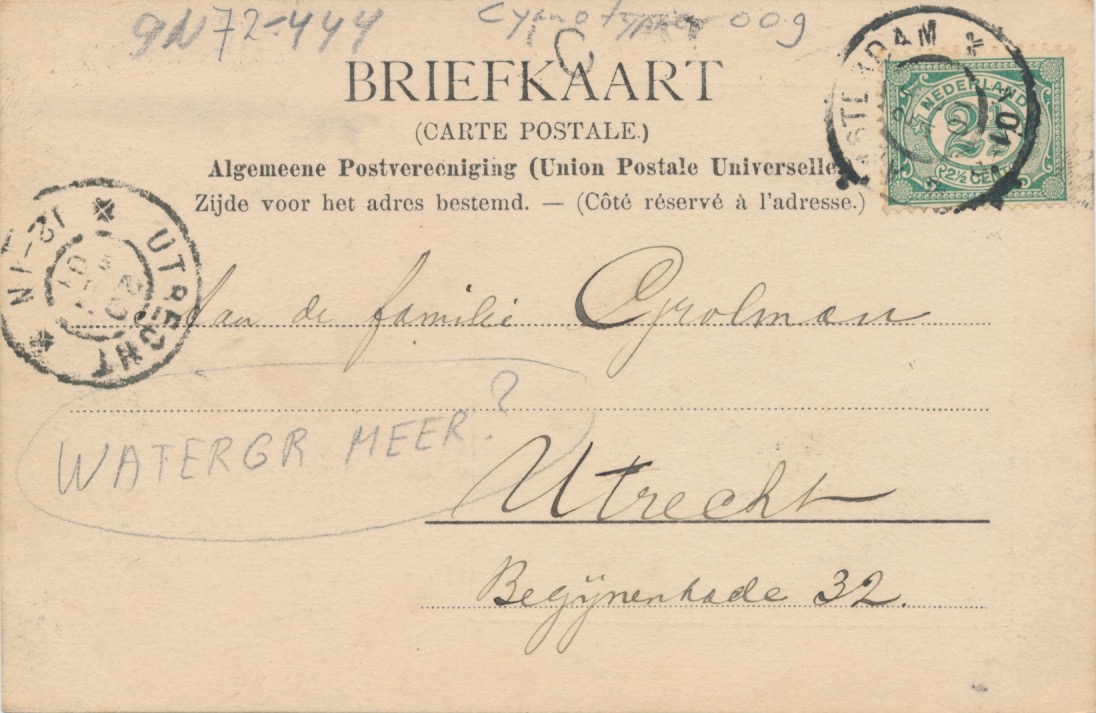 9N72-444 Cyanotypie 009
C
BRIEFKAART
(CARTE POSTALE.)
Algemeene Postvereeniging (Union Postale Universelle)
Zijde voor het adres bestemd. — (Côté réservé à l'adresse.)
AMSTERDAM
NEDERLAND
2½
2½ CENT
UTRECHT
12-1N
Aan de familie Grolman
WATERGR. MEER?
Utrecht
Begijnenkade 32.